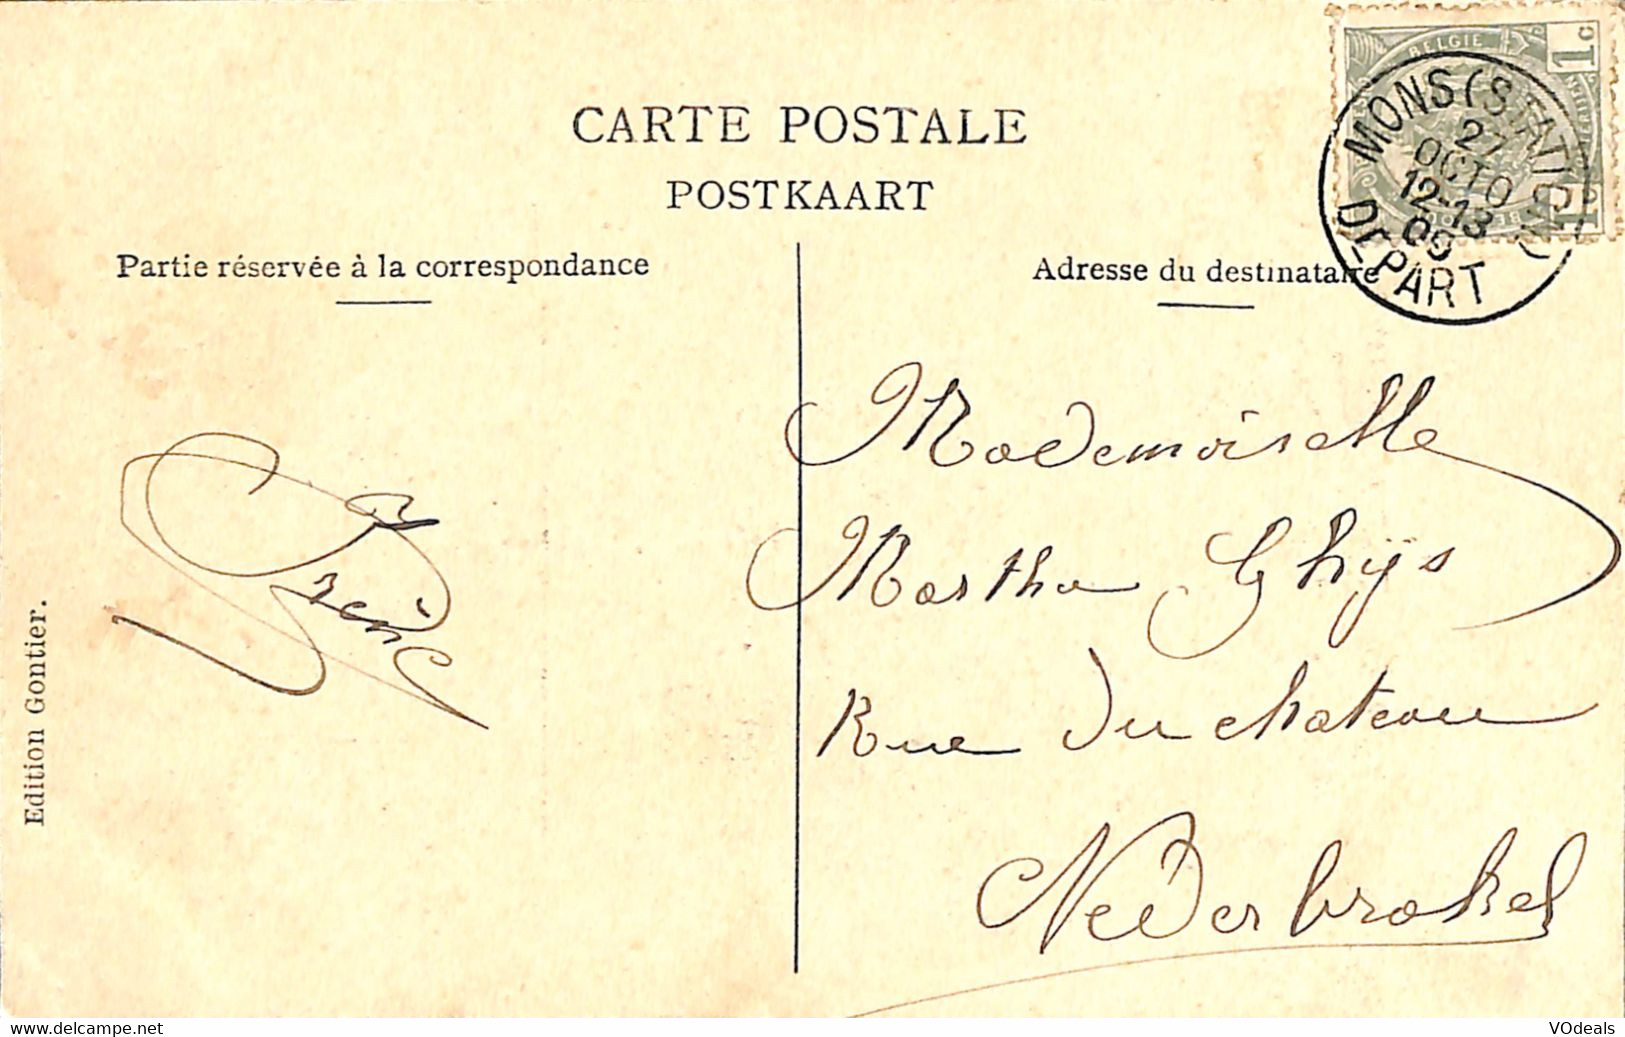 CARTE POSTALE
POSTKAART
Partie réservée à la correspondance
Adresse du destinataire
BELGIE
1c
MONS (STATION)
27
OCTO
12-13
09
DEPART
Mademoiselle
Martha Ghÿs
Rue du chateau
Nederbrakel
Irène
Edition Gontier.
delcampe.net
VOdeals